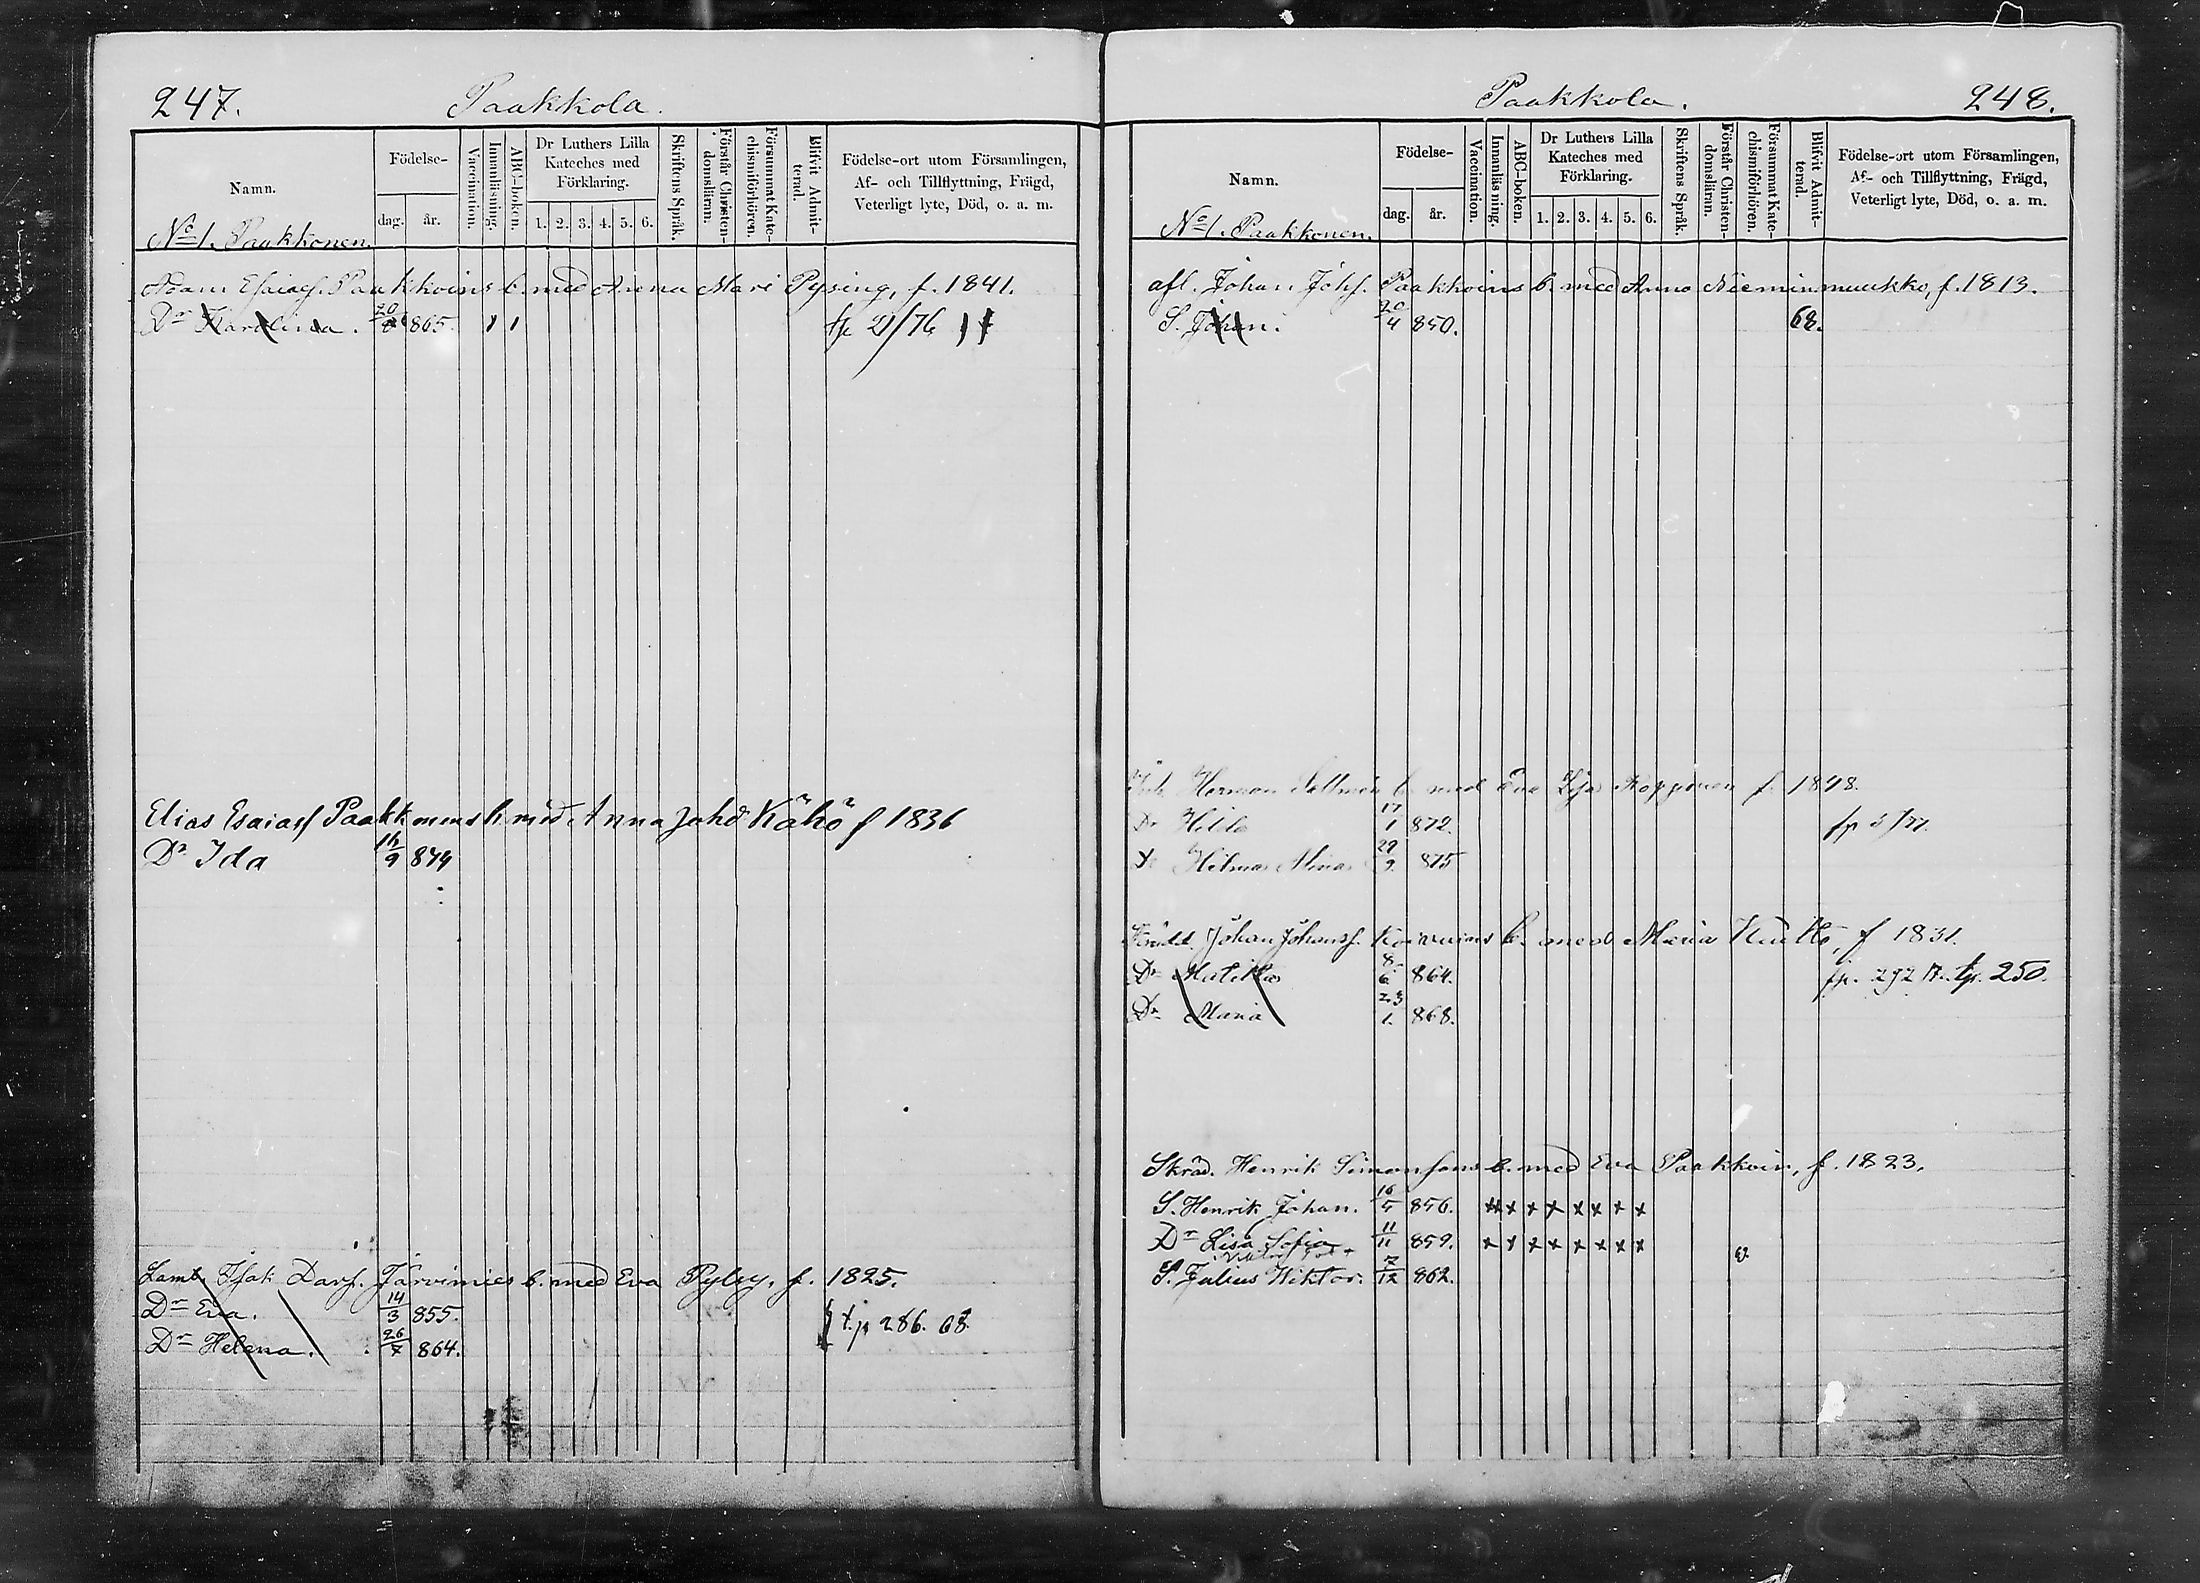 247. Paakkola.
Namn.
Födelse-
dag. år.
Vaccination.
Innanläsning.
ABC-boken.
Dr Luthers Lilla Kateches med Förklaring.
1. 2. 3. 4. 5. 6.
Skriftens Språk.
Förstår Christendomsläran.
Försummat Katechismiförhören.
Blifvit Admitterad.
Födelse-ort utom Församlingen, Af- och Tillflyttning, Frägd, Veterligt lyte, Död, o. a. m.
No 1. Paakkonen.
Adam Esaiass. Paakkoins b. med Anna Mari Pysing, f. 1841.
Dr Karolina. 20/8 865.
Elias Esaiass Paakkonens h med Anna Johd Kähö f 1836
Dr Ida 16/9 874
Lamb. Isak Davs. Järvinies b. med Eva Pylsy, f. 1825.
Dr Eva. 14/3 855. t.p 286. 68.
Dr Helena. 26/7 864.
Paakkola. 248.
Namn.
Födelse-
dag. år.
Vaccination.
Innanläsning.
ABC-boken.
Dr Luthers Lilla Kateches med Förklaring.
1. 2. 3. 4. 5. 6.
Skriftens Språk.
Förstår Christendomsläran.
Försummat Katechismiförhören.
Blifvit Admitterad.
Födelse-ort utom Församlingen, Af- och Tillflyttning, Frägd, Veterligt lyte, Död, o. a. m.
No 1. Paakkonen.
afl. Johan Johs. Paakkoins b. med Anna Nieminmuukko, f. 1813.
S. Johan. 20/4 850. 68.
Herman b. med Eva Kopponen f. 1848.
Dr Hilda 17/1 872.
Hilma Mina 29/9 875
Johan Johanss. Koivuins b. med Maria Huttö, f 1831.
Dr Matilda 8/6 864. fp. 292 tp. 250.
Dr Maria 23/1. 868.
Skräd. Henrik Simonsons b. med Eva Paakkoin, f. 1823.
S. Henrik Johan. 16/5 856. x x x x x x x x
Dr Lisa Sofia 11/11 859. x x x x x x x x
S. Julius Wiktor. 7/12 862.